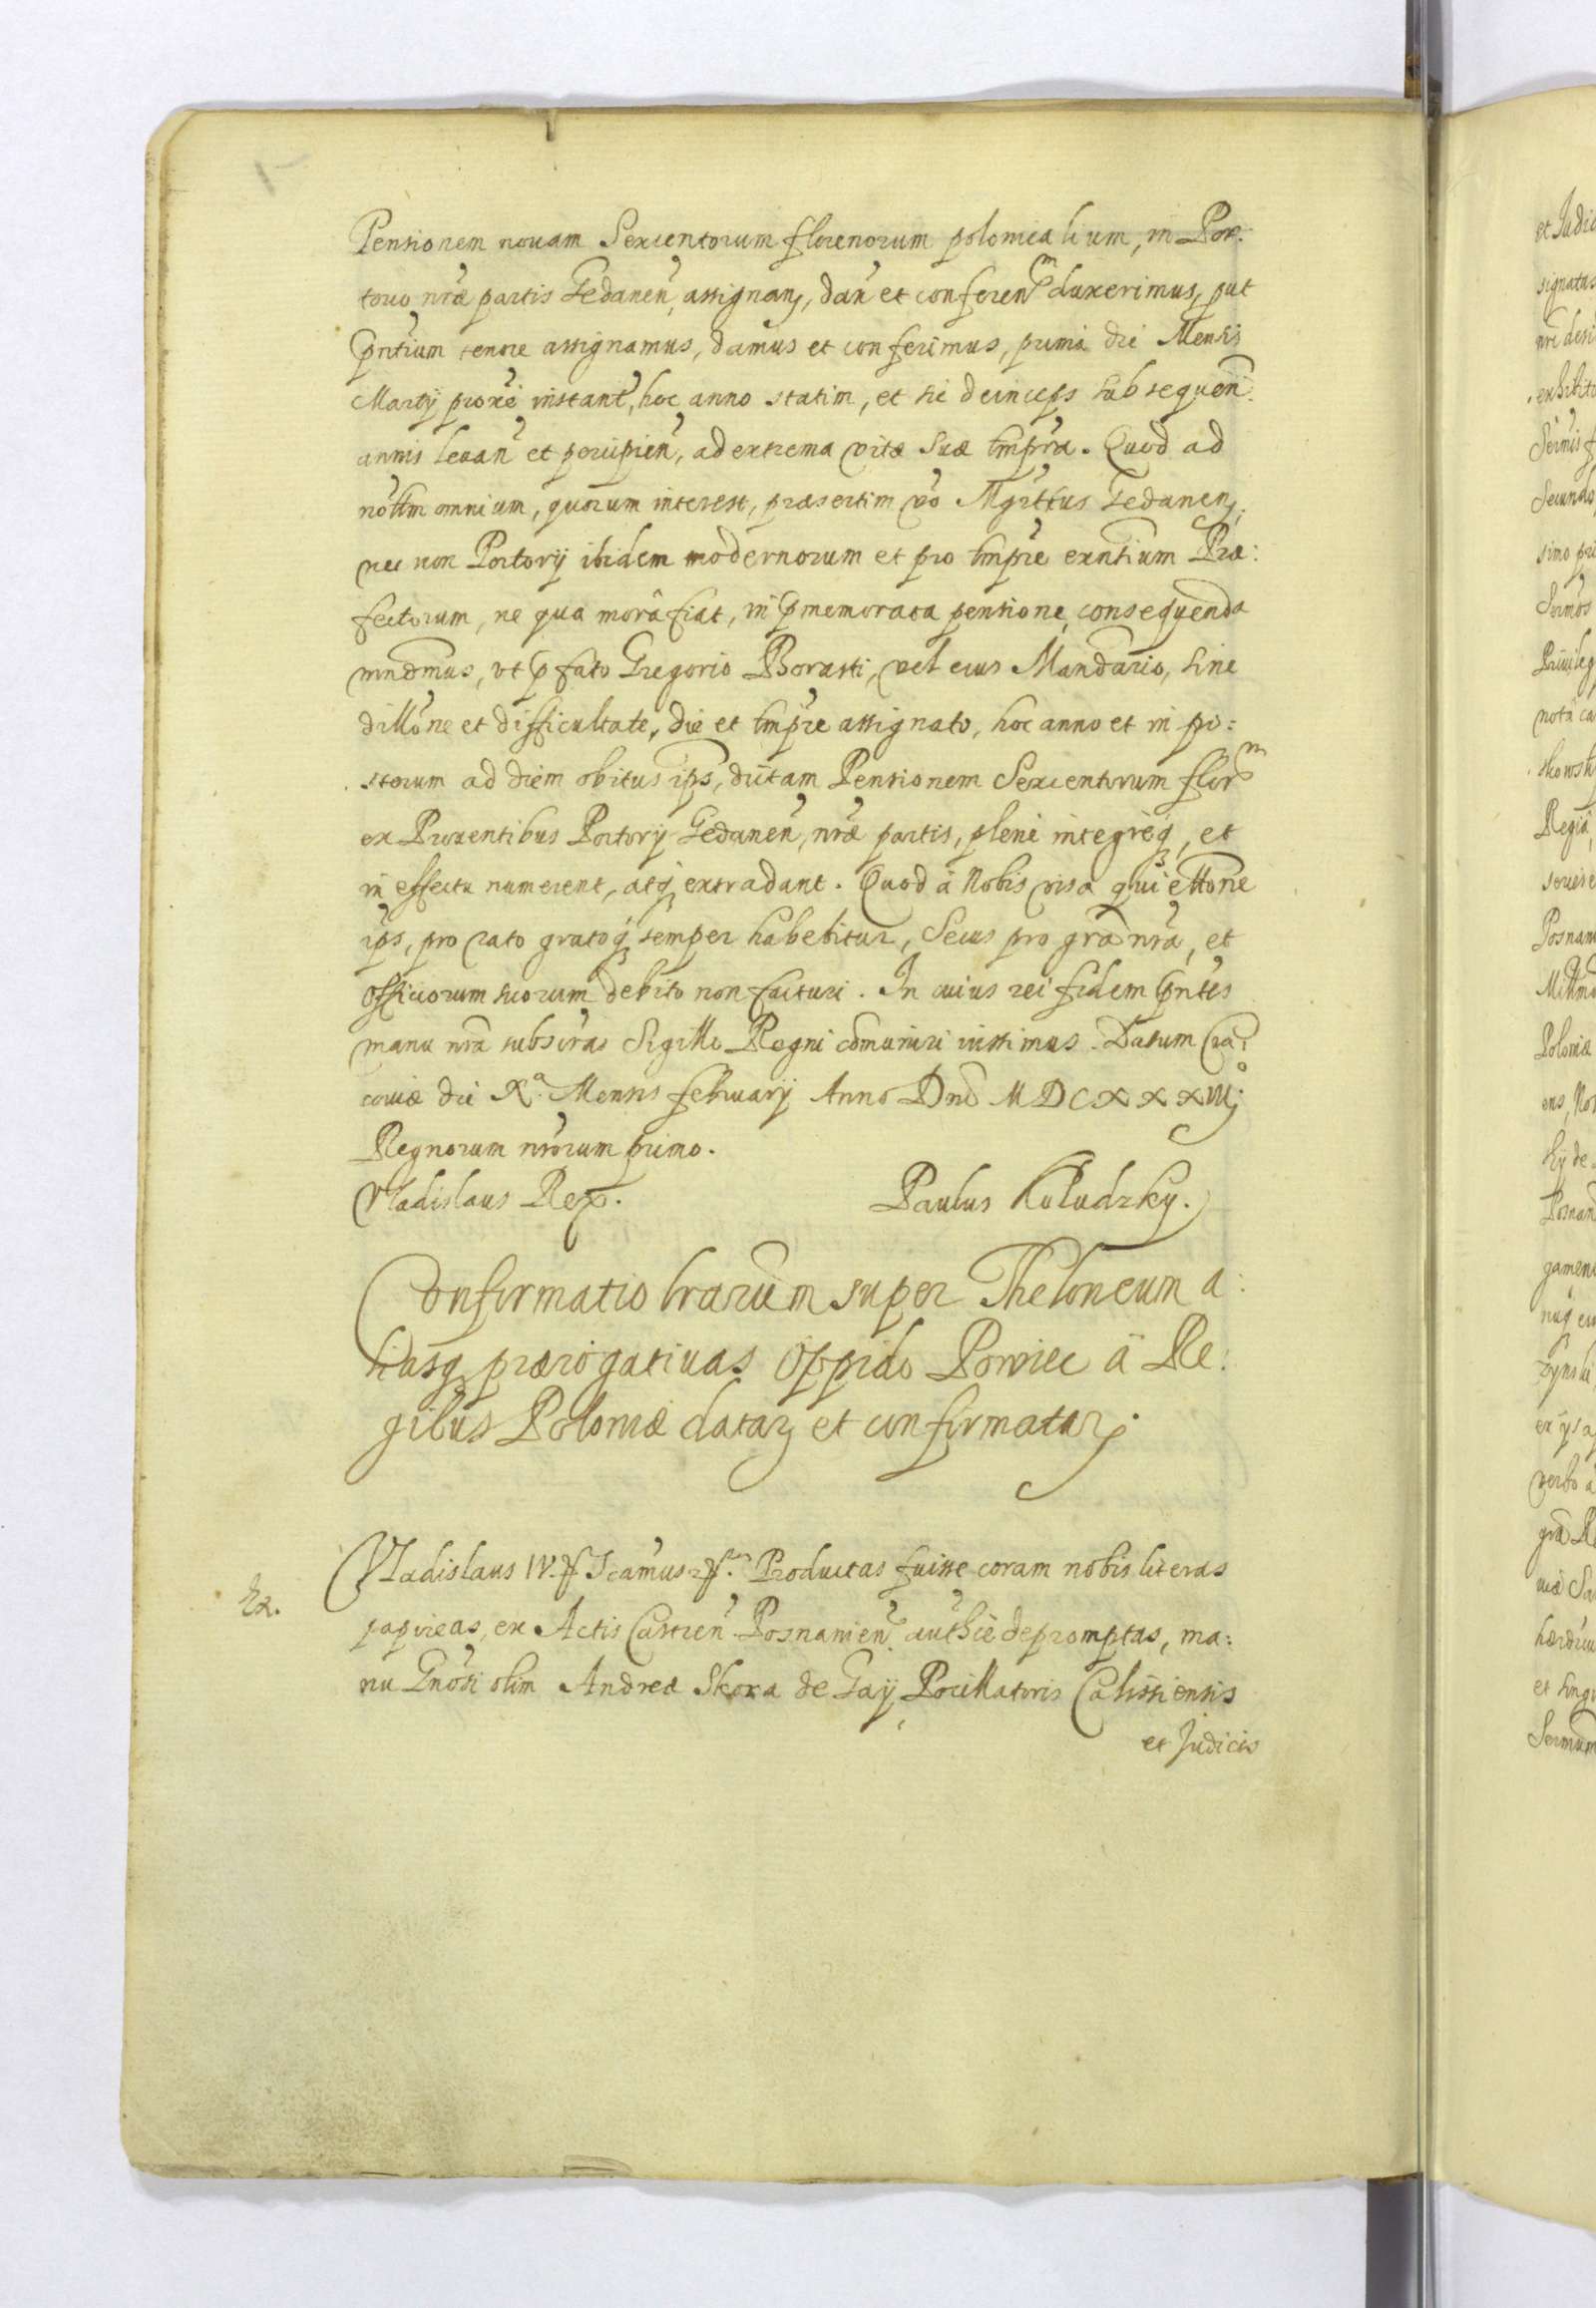 Pensionem nouam Sexcentorum florenorum polonicalium, in Por:
torio nrae partis Gedanen, assignan, dan et conferen duxerimus, put
pntium tenore assignamus, damus et conferimus, prima die Mensis
Martij proxe instant, hoc anno statim, et sic deinceps subsequen:
annis leuan et percipien, ad extrema vitae suae tmpra. Quod ad
nottm omnium, quorum interest, praesertim vo Mgrttus Gedanen,
nec non Portorij ibidem modernorum et pro tmpre exntium Prae:
fectorum, ne qua mora fiat, in pmemorata pensione, consequenda
mndmus, vt pfato Gregorio Borasti, vel eius Mandario, sine
dillone et difficultate, die et tmpre assignato, hoc anno et in po:
sterum ad diem obitus ips, dictam Pensionem Sexcentorum flor
ex Prouentibus Portorij Gedanen, nrae partis, plene integreq, et
in effectu numerent, atq extradant. Quod à Nobis visa quiettone
ips, pro rato gratoq semper habebitur, Secus pro gra nra, et
Officiorum suorum debito non facturi. In cuius rei fidem pntes
manu nra subscras Sigillo Regni comuniri iussimus. Datum Cra:
couiae die Xa. Mensis februarij Anno Dni MDCXXXIIIo
Regnorum nrorum primo.
Vladislaus Rex. Paulus Koludzky.
Confirmatio lrarum super Theloneum a:
liasq praerogatiuas Oppido Powiec à Re:
gibus Poloniae datar et confirmatar.
Vladislaus IV. Scamus Productas fuisse coram nobis literas
Ex.
papireas, ex Actis Castren Posnanien authce depromptas, ma:
nu Gnosi olim Andreae Skora de Gay Pocillatoris Calissiensis
et Judicis